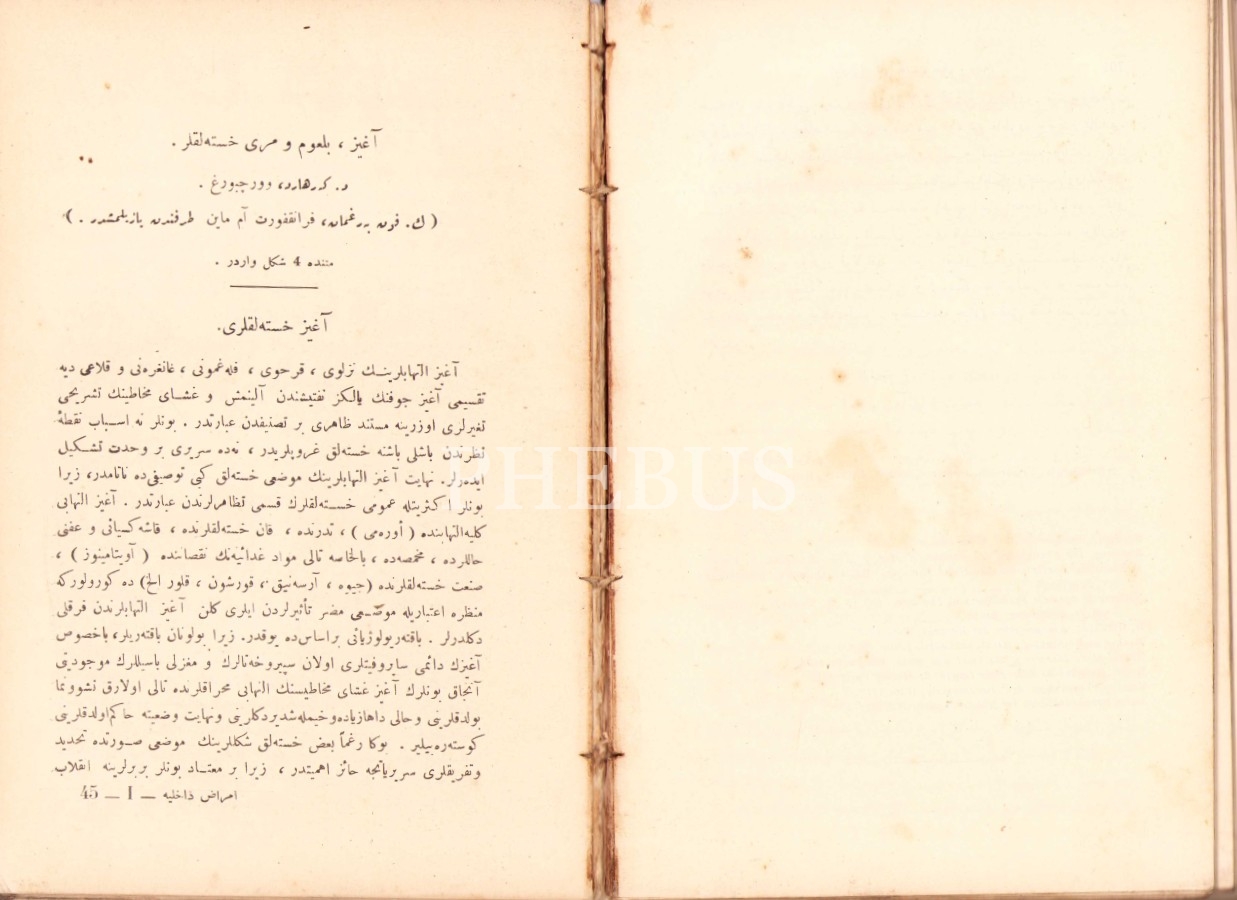 آغیز ، بلعوم و مری خسته‌لقلر .
د. کەرهارد، وورچبورغ .
( ك. فون بەرغمان، فرانقفورت آم ماین طرفندن یازیلمشدر . )
متنده 4 شکل واردر .
آغیز خسته‌لقلری.
آغیز التهابلرینـك نزلوی ، قرحوی ، فله‌غمونی ، غانغره‌نی و قلاعی دیه
تقسیمی آغیز جوفنك یالکز تفتیشندن آلینمش و غشای مخاطینك تشریحی
تغیرلری اوزرینه مستند ظاهری بر تصنیفدن عبارتدر . بونلر نه اسباب نقطهٔ
نظرندن باشلی باشنه خسته‌لق غروپلریدر ، نه‌ده سریری بر وحدت تشکیل
ایده‌رلر. نهایت آغیز التهابلرینك موضعی خسته‌لق کبی توصیفی‌ده ناتامدر، زیرا
بونلر اکثریتله عمومی خسته‌لقلرك قسمی تظاهرلرندن عبارتدر . آغیز التهابی
کلیه‌التهابنده ( أوره‌می ) ، تدرنده ، قان خسته‌لقلرنده ، قاشه‌کسیائی و عفنی
حاللرده ، مخمصه‌ده ، بالخاصه تالی مواد غدائیه‌نك نقصاننده ( آویتامینوز ) ،
صنعت خسته‌لقلرنده (جیوه ، آرسه‌نیق ، قورشون ، قلور الخ) ده کورولورکه
منظره اعتباریله موضـعی مضر تأثیرلردن ایلری کلن آغیز التهابلرندن فرقلی
دکلدرلر . باقته‌ریولوژیائی بر اساس‌ده یوقدر. زیرا بولونان باقته‌ریلر، باخصوص
آغیزك دائمی ساپروفیتلری اولان سپیروخه‌تالرك و مغزلی باسیللرك موجودیتی
آنجاق بونلرك آغیز غشای مخاطیسنك التهابی محراقلرنده تالی اولارق نشوونما
بولدقلرینی وحالی داهازیاده‌وخیمله‌شدیردکلرینی ونهایت وضعیته حاکم‌اولدقلرینی
کوستره‌بیلیر . بوکا رغماً بعض خسته‌لق شکللرینك موضعی صورتده تحدید
وتفریقلری سریریاتجه حائز اهمیتدر ، زیرا بر معتـاد بونلر بربرلرینه انقلاب
امراض داخلیه — I — 45
PHEBUS